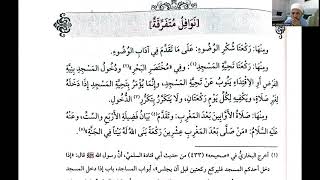 [نَوَافِلُ مُتَفَرِّقَةٌ]
وَمِنْهَا: رَكْعَتَا شُكْرِ الْوُضُوءِ: عَلَى مَا تَقَدَّمَ فِي آدَابِ الْوُضُوءِ.
وَمِنْهَا: رَكْعَتَا تَحِيَّةِ الْمَسْجِدِ(١)، وَفِي «مُخْتَصَرِ الْبَحْرِ»(٢): وَدُخُولُ الْمَسْجِدِ بِنِيَّةِ
الْفَرْضِ أَوِ الِاقْتِدَاءِ يَنُوبُ عَنْ تَحِيَّةِ الْمَسْجِدِ، وَإِنَّمَا يُؤْمَرُ بِتَحِيَّةِ الْمَسْجِدِ إِذَا دَخَلَهُ
لِغَيْرِ صَلَاةٍ، وَيَكْفِيهِ لِكُلِّ يَوْمٍ رَكْعَتَانِ، وَلَا يَتَكَرَّرُ بِتَكَرُّرِ الدُّخُولِ.
وَمِنْهَا: صَلَاةُ الْأَوَّابِينَ بَعْدَ الْمَغْرِبِ، وَتَقَدَّمَ بَيَانُ فَضِيلَةِ الْأَرْبَعِ وَالسِّتِّ، وَعَنْهُ
عَلَيْهِ السَّلَامُ: «مَنْ صَلَّى بَعْدَ الْمَغْرِبِ عِشْرِينَ رَكْعَةً بَنَى اللهُ لَهُ بَيْتاً فِي الْجَنَّةِ»
(١) أخرج البخاري في «صحيحه» (٤٣٣) من حديث أبي قتادة السلمي: أن رسول الله ﷺ قال: «إذا
دخل أحدكم المسجد فليركع ركعتين قبل أن يجلس»